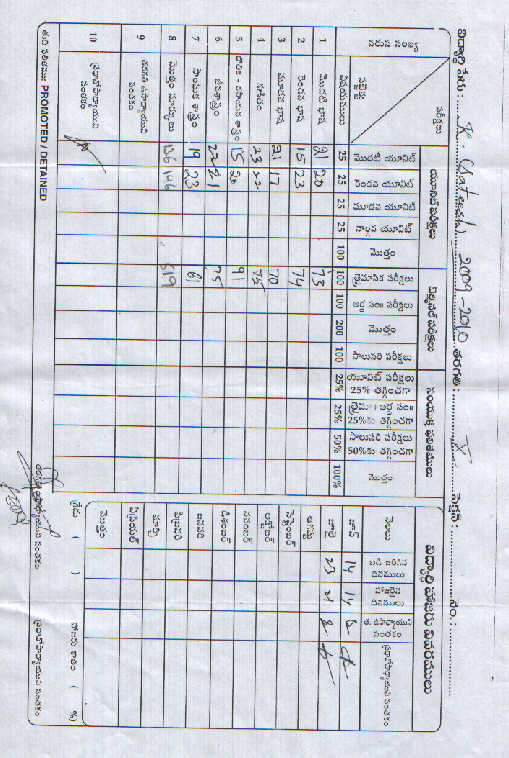 విద్యార్థి పేరు : K. 2009 - 2010 తరగతి : X సెక్షన్ : నం. :
వరుస సంఖ్య పరీక్షలు యూనిట్ పరీక్షలు టెర్మినల్ పరీక్షలు సంయుక్త ఫలితములు
విషయములు మొదటి యూనిట్ రెండవ యూనిట్ మూడవ యూనిట్ నాల్గవ యూనిట్ మొత్తం త్రైమాసిక పరీక్షలు అర్ధ సం॥ పరీక్షలు మొత్తం సాలుసరి పరీక్షలు యూనిట్ పరీక్షలు 25% తగ్గించగా త్రైమా॥ అర్ధ సం॥ 25%కు తగ్గించగా సాలుసరి పరీక్షలు 50%కు తగ్గించగా మొత్తం
25 25 25 25 100 100 100 200 100 25% 25% 50% 100%
1 మొదటి భాష 21 20 73
2 రెండవ భాష 15 23 74
3 మూడవ భాష 21 17 70
4 గణితం 23 22 75
5 భౌతిక - రసాయన శాస్త్రం 15 20 91
6 జీవశాస్త్రం 22 21 75
7 సాంఘిక శాస్త్రం 19 23 61
8 మొత్తం మార్కులు 136 146 519
9 తరగతి ఉపాధ్యాయుని సంతకం
10 ప్రధానోపాధ్యాయుని సంతకం
తుది ఫలితము PROMOTED / DETAINED
విద్యార్థి హాజరు వివరములు
నెలలు బడి జరిగిన దినములు హాజరైన దినములు త. ఉపాధ్యాయుని సంతకం ప్రధానోపాధ్యాయుని సంతకం
జూన్ 14 14
జూలై 25 21
ఆగష్టు
సెప్టెంబర్
అక్టోబర్
నవంబర్
డిశంబర్
జనవరి
ఫిబ్రవరి
మార్చి
ఏప్రియల్
మొత్తం
గ్రేడు ( ) హాజరు శాతం ( %)
తరగతి ఉపాధ్యాయుని సంతకం ప్రధానోపాధ్యాయుని సంతకం